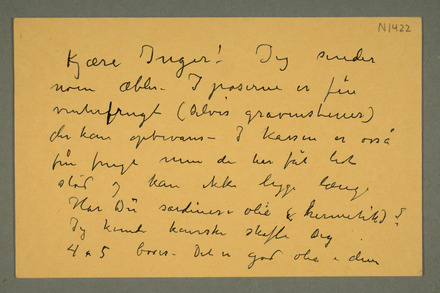 N1422
Kjære Inger! Jeg sender
noen æbler. I poserne er fin
vinterfrugt (delvis gravenstener)
der kan opbevares – I kassen er også
fin frugt men de har fåt let
stød og kan ikke ligge længe
Har Du sardiner i olie (hermetik)?
Jeg kunde kanske skaffe Dig
4 a 5 bokse. Det er god olie i dem